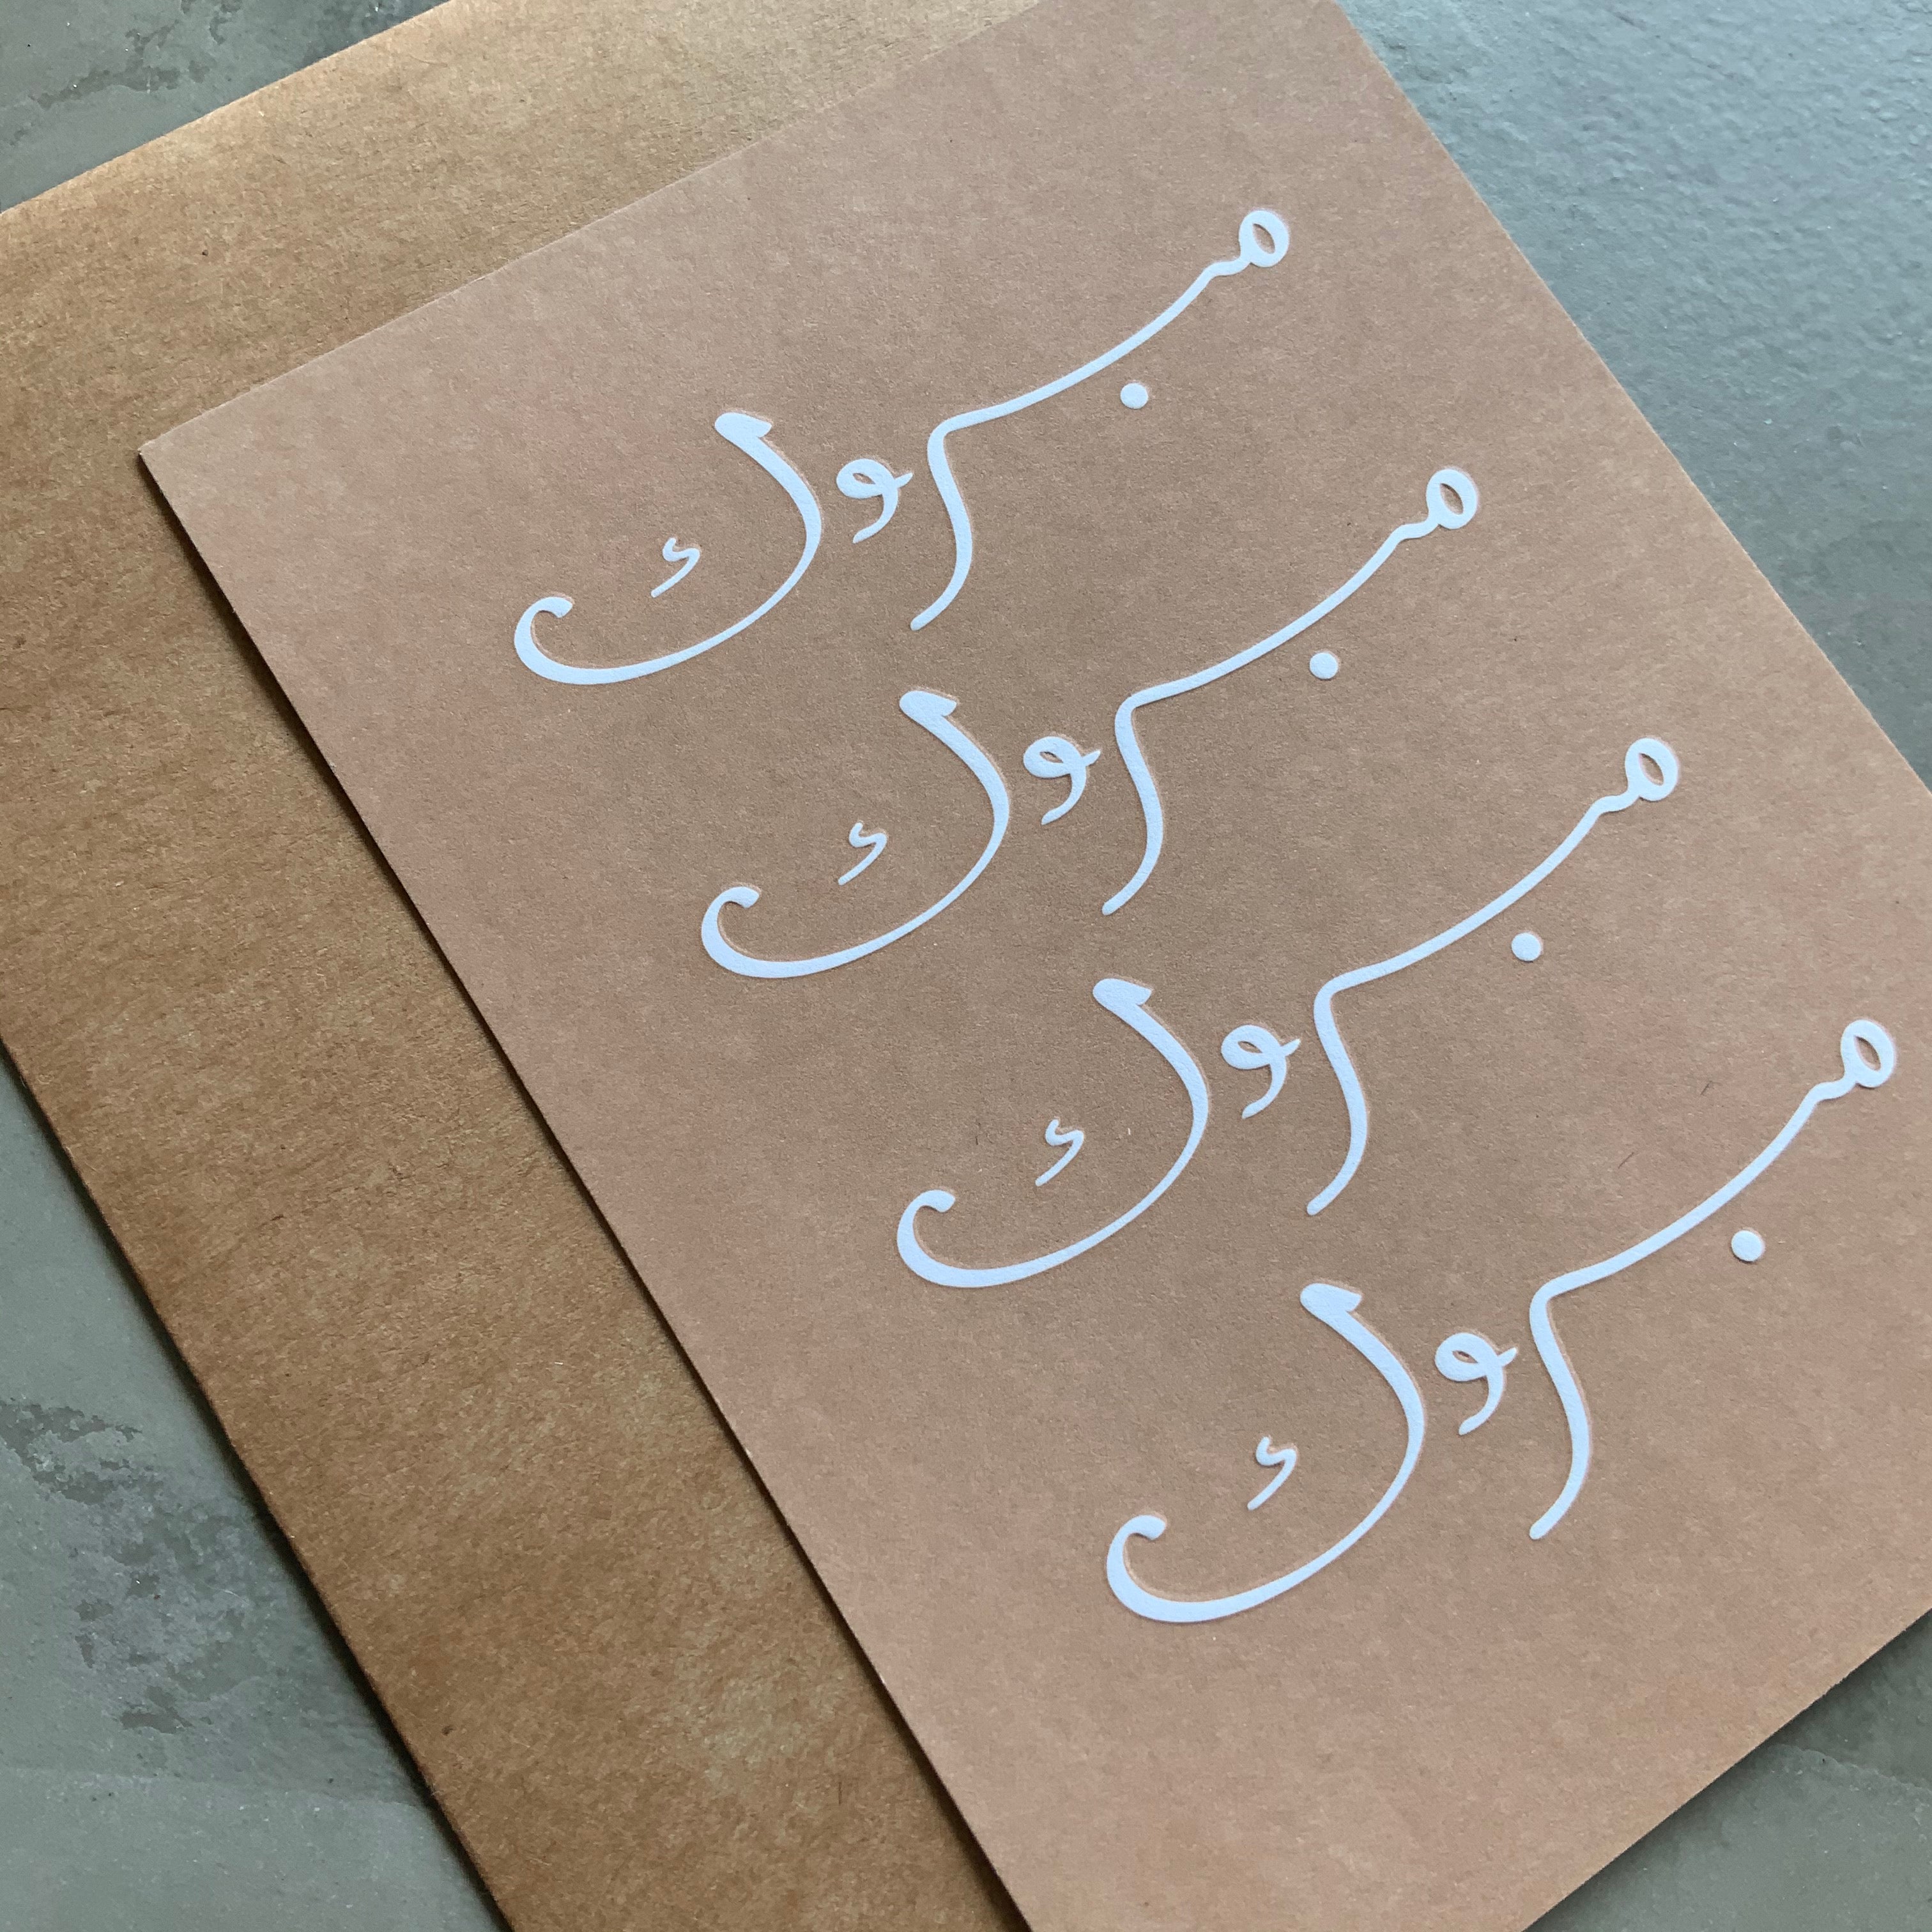 مبروك
مبروك
مبروك
مبروك